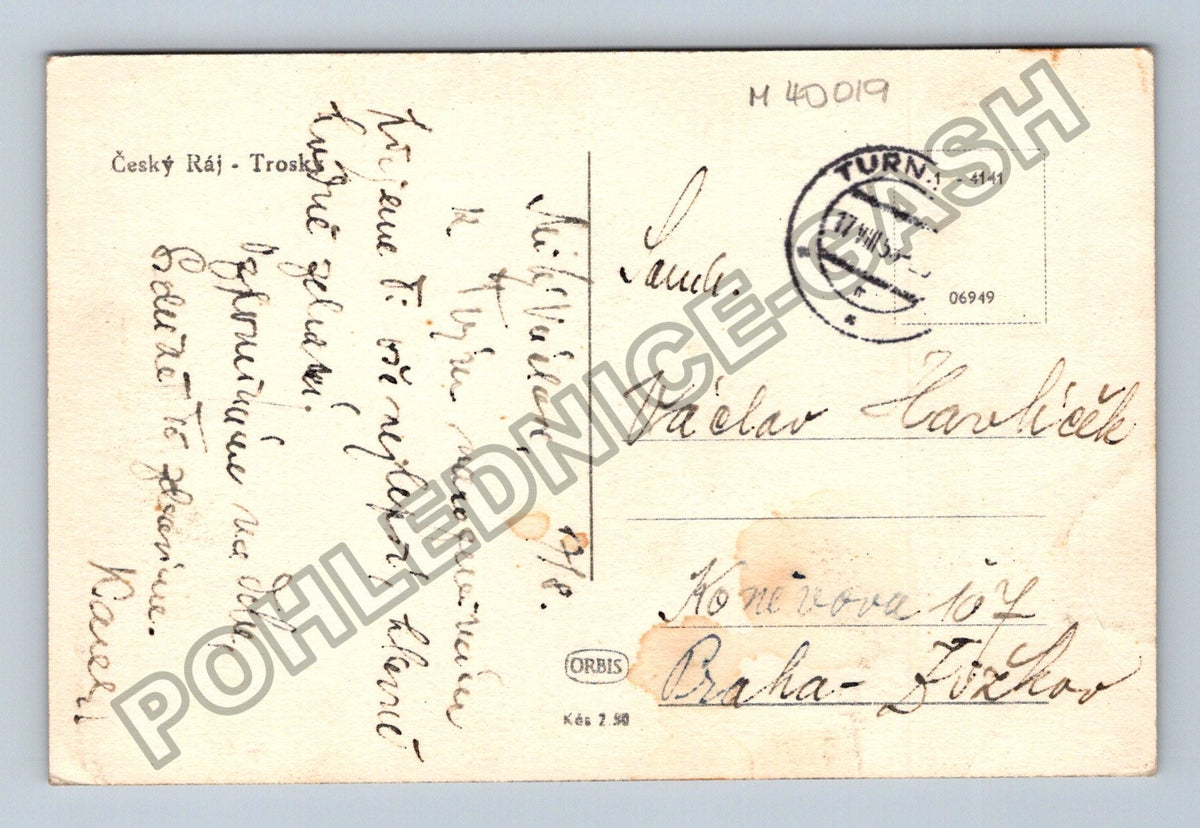 M 40019
Český Ráj - Trosky
TURN
17 VIII 5
4141
06949
Milý Václave,
17/8.
K Tvým narozeninám
přejeme Ti vše nejlepší, hlavně
hodně zdraví.
Vzpomínáme na Tebe,
Srdečně Tě zdravíme.
Soudr.
Václav Havlíček
Koněvova 107
Praha - Žižkov
ORBIS
Kčs 2.50
POHLEDNICE-GASH